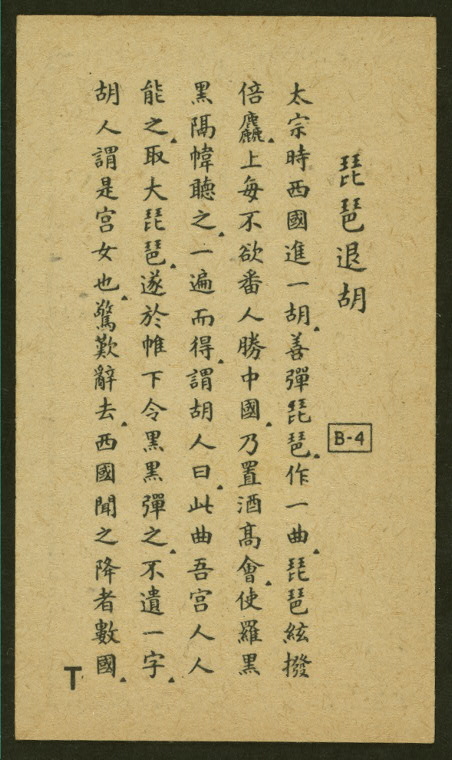 琵琶退胡
B-4
太宗時西國進一胡善彈琵琶作一曲琵琶絃撥
倍麤上每不欲番人勝中國乃置酒高會使羅黑
黑隔幃聽之一遍而得謂胡人曰此曲吾宮人人
能之取大琵琶遂於帷下令黑黑彈之不遺一字
胡人謂是宮女也驚歎辭去西國聞之降者數國
T